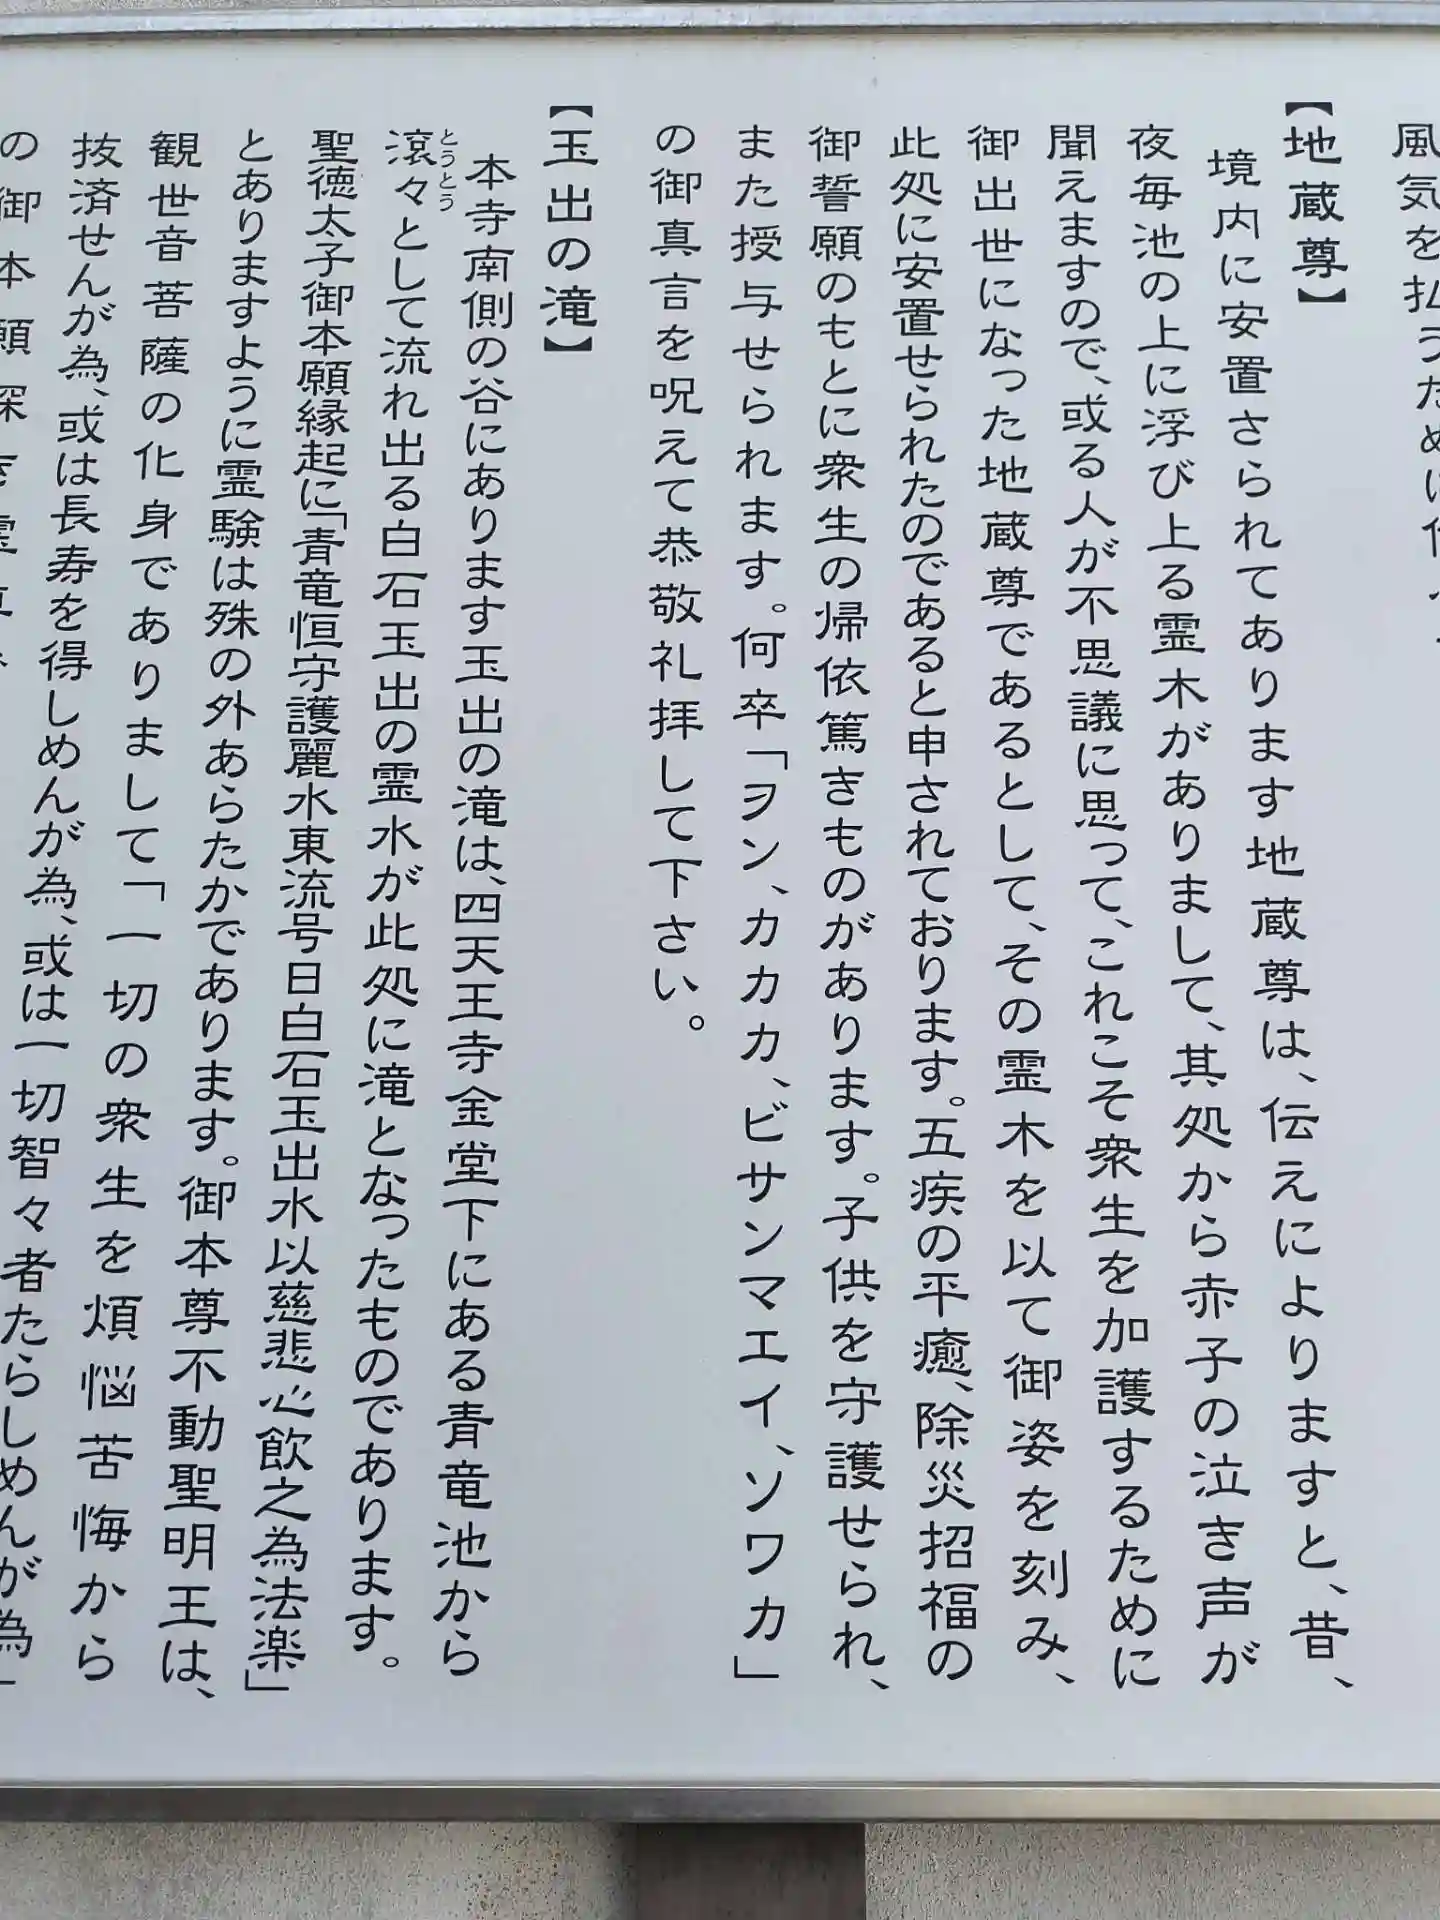 風気を払うために
【地蔵尊】
境内に安置さられてあります地蔵尊は、伝えによりますと、昔、
夜毎池の上に浮び上る霊木がありまして、其処から赤子の泣き声が
聞えますので、或る人が不思議に思って、これこそ衆生を加護するために
御出世になった地蔵尊であるとして、その霊木を以て御姿を刻み、
此処に安置せられたのであると申されております。五疾の平癒、除災招福の
御誓願のもとに衆生の帰依篤きものがあります。子供を守護せられ、
また授与せられます。何卒「ヲン、カカカ、ビサンマエイ、ソワカ」
の御真言を呪えて恭敬礼拝して下さい。
【玉出の滝】
本寺南側の谷にあります玉出の滝は、四天王寺金堂下にある青竜池から
とうとう
滾々として流れ出る白石玉出の霊水が此処に滝となったものであります。
聖徳太子御本願縁起に「青竜恒守護麗水東流号日白石玉出水以慈悲心飲之為法楽」
とありますように霊験は殊の外あらたかであります。御本尊不動聖明王は、
観世音菩薩の化身でありまして「一切の衆生を煩悩苦悔から
抜済せんが為、或は長寿を得しめんが為、或は一切智々者たらしめんが為」
の御本願深き霊